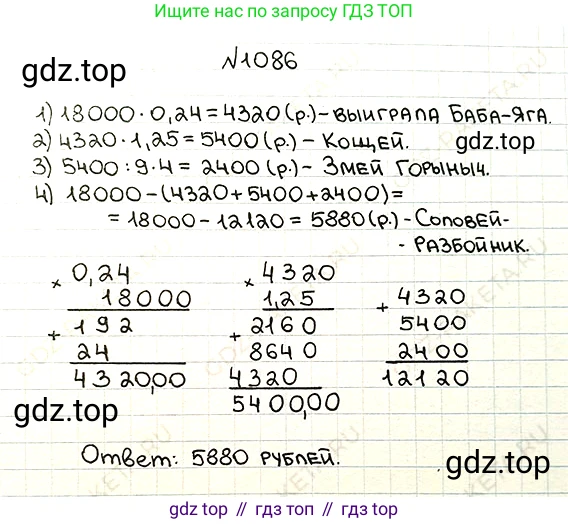 Ищите нас по запросу ГДЗ ТОП
gdz.top
№1086
1) 18000 · 0,24 = 4320 (р.) – выиграла Баба-Яга.
2) 4320 · 1,25 = 5400 (р.) – Кощей.
gdz.top
3) 5400 : 9 · 4 = 2400 (р.) – Змей Горыныч.
4) 18000 – (4320 + 5400 + 2400) =
= 18000 – 12120 = 5880 (р.) – Соловей-
- разбойник.
× 0,24
18000
+ 192
24
4320,00
× 4320
1,25
+ 2160
8640
4320
5400,00
+ 4320
5400
2400
12120
gdz.top
Ответ: 5880 рублей.
gdz.top
gdz.top // гдз топ // гдз.топ